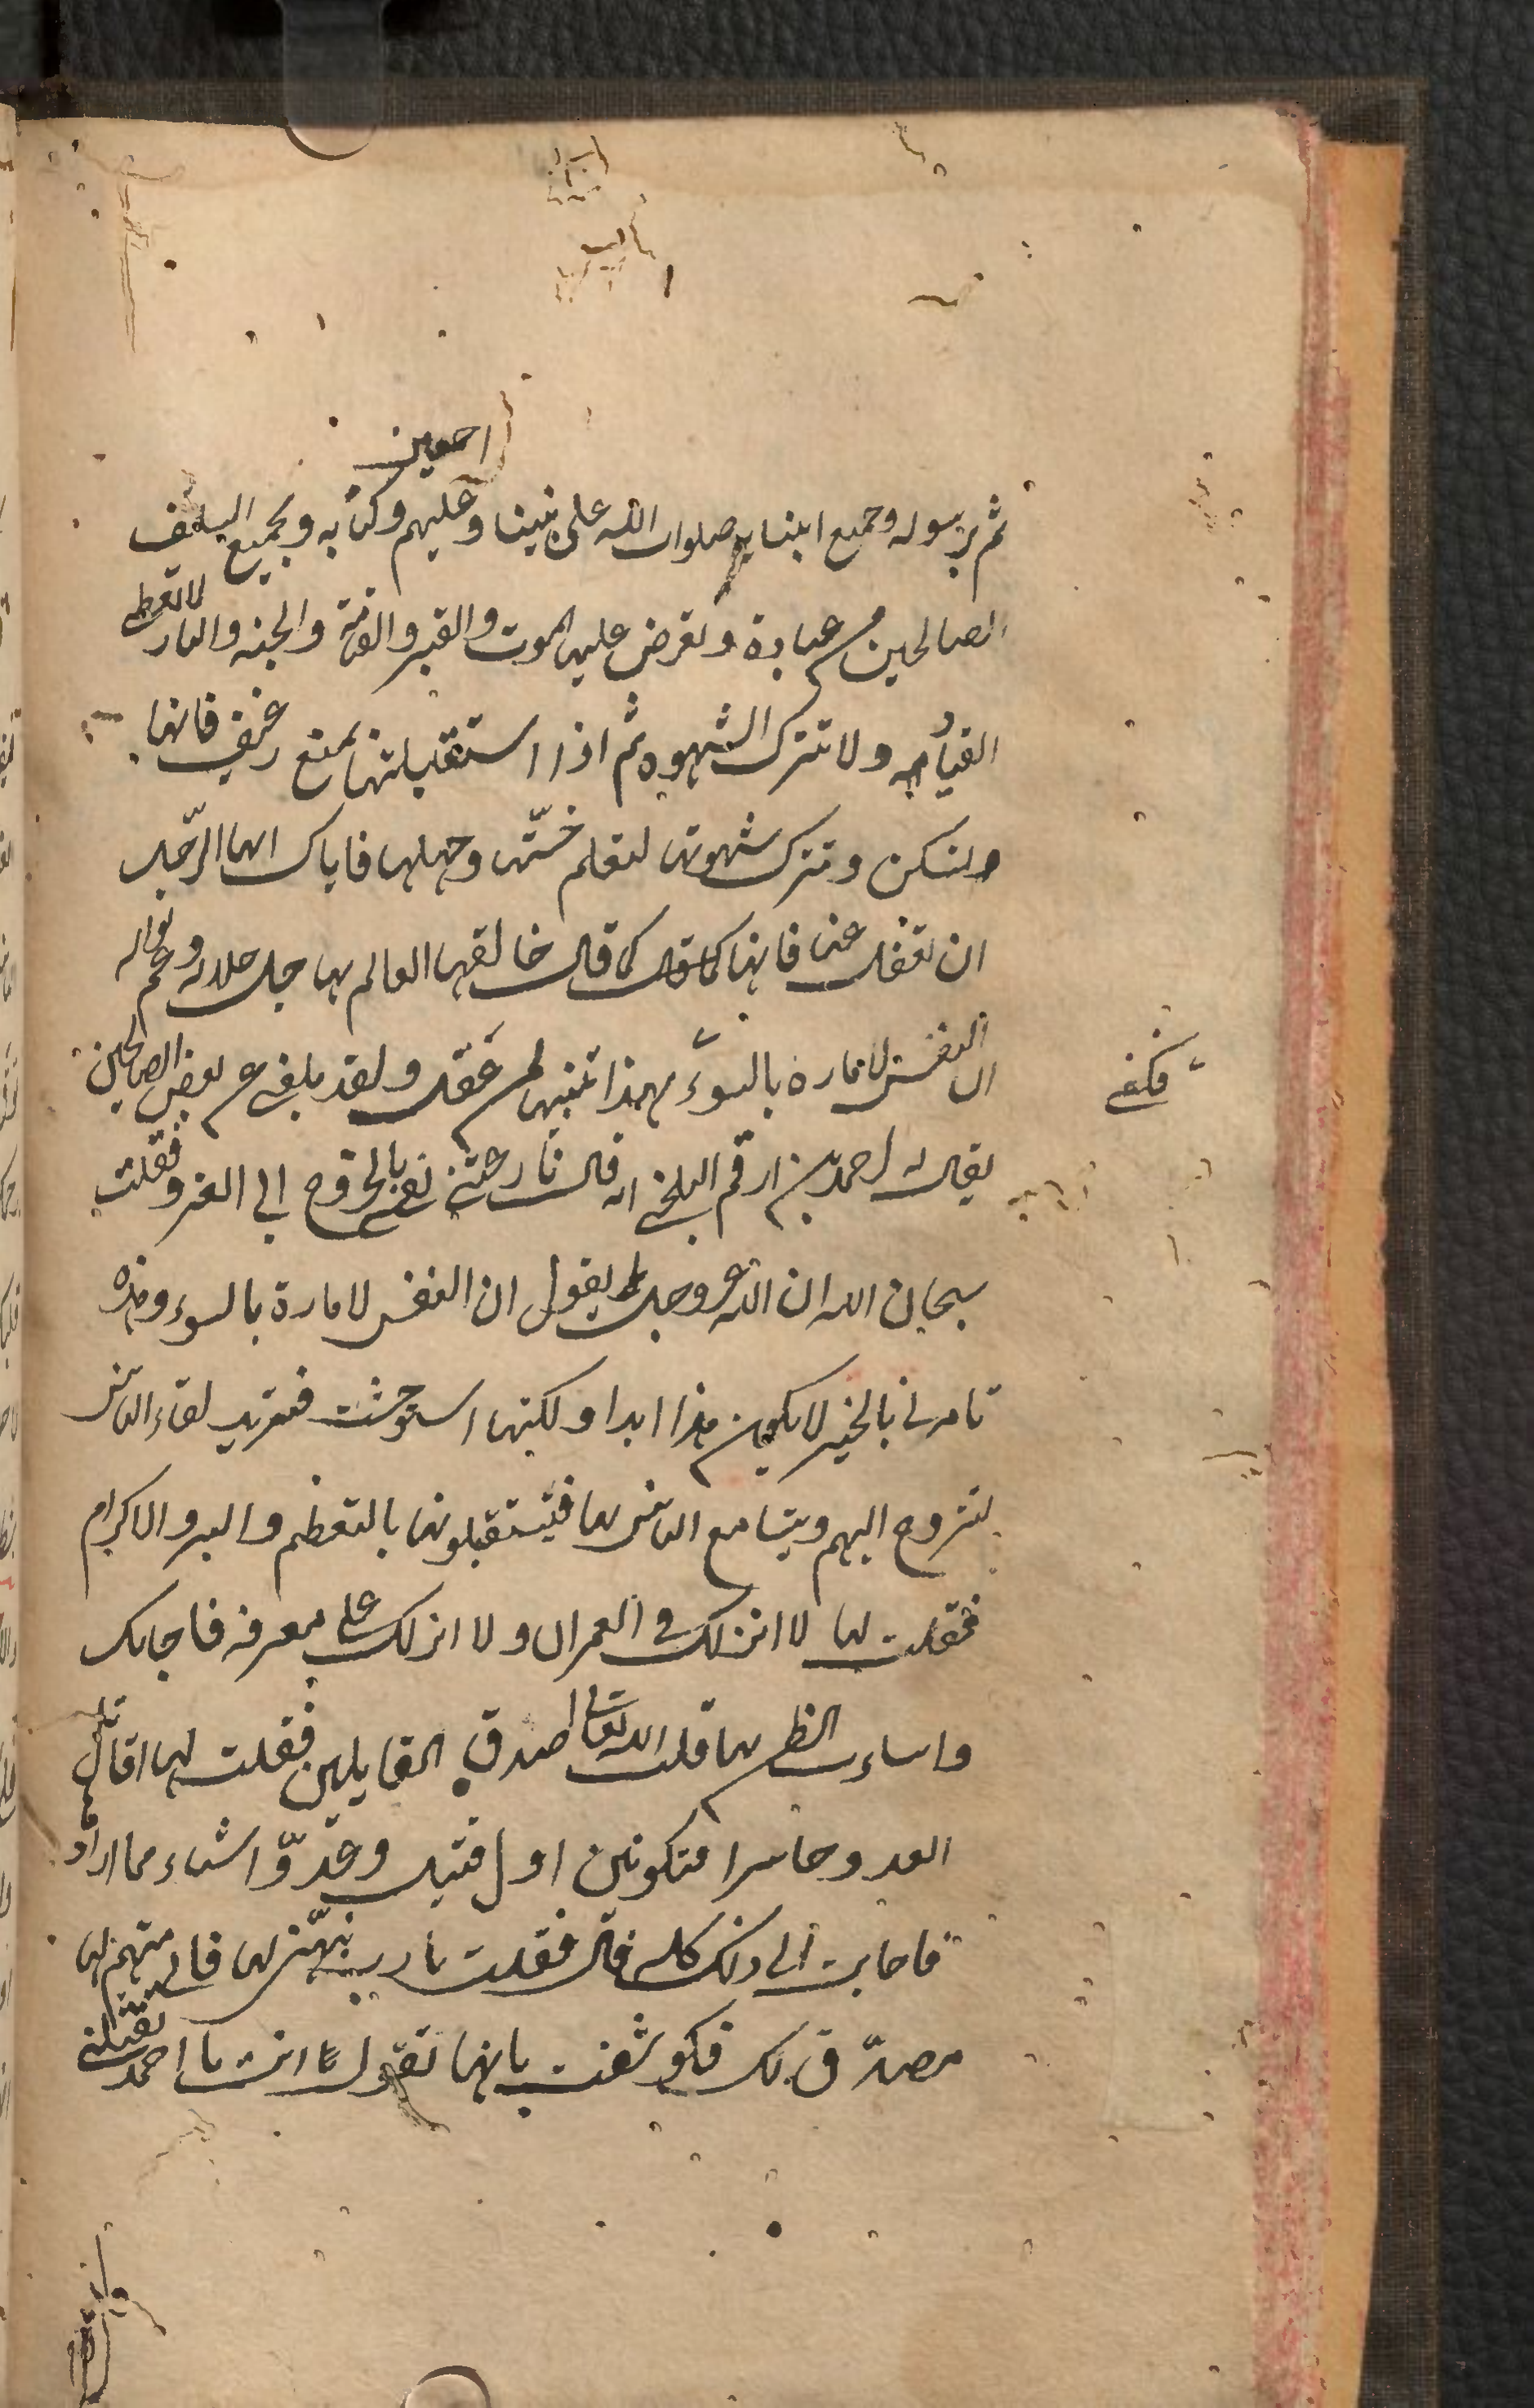 اجمعين
ثم برسوله وجميع انبيايه صلوات الله على نبينا وعليهم وكتابه وبجميع السلف
الصالحين من عباده وتعرض عليها الموت والقبر والقيامة والجنه والنار لا تعطى
القياد ولا تترك الشهوه ثم اذا استقبلتها بمنع رغيف فانها
ولتسكن وتترك شهوتها لتعلم خستها وجهلها فاياك ايها الرجل
ان تغفل عنها فانها كما قال كما قال خالقها العالم بها جل جلاله وعم نواله
ان النفس لامارة بالسوء بهذا تنبيها لمن عقل ولقد بلغني عن بعض الصالحين
فكفى
يقال له احمد بن ارقم البلخي انه قال نازعتني نفسي بالخروج الى الغزو فقلت
سبحان الله ان الله عز وجل يقول ان النفس لامارة بالسوء وهذه
تامرني بالخير لا يكون هذا ابدا ولكنها استوحشت فتريد لقاء الناس
لتتروح اليهم ويتسامع الناس بها فيستقبلونها بالتعظيم والبر والاكرام
فقلت لها لا انزلك في العمران ولا انزلك على معرفه فاجابت
واساءت الظن بها قلت الله تعالى اصدق القايلين فقلت لها اقاتل
العدو حاسرا فتكونين اول قتيل وعد اشياء مما ارادها
فاجابت الى ذلك كله قال فقلت يا رب نبهني لها فاني متهم لها
مصدق لك فكوشفت بانها تقول انت يا احمد تقتلني